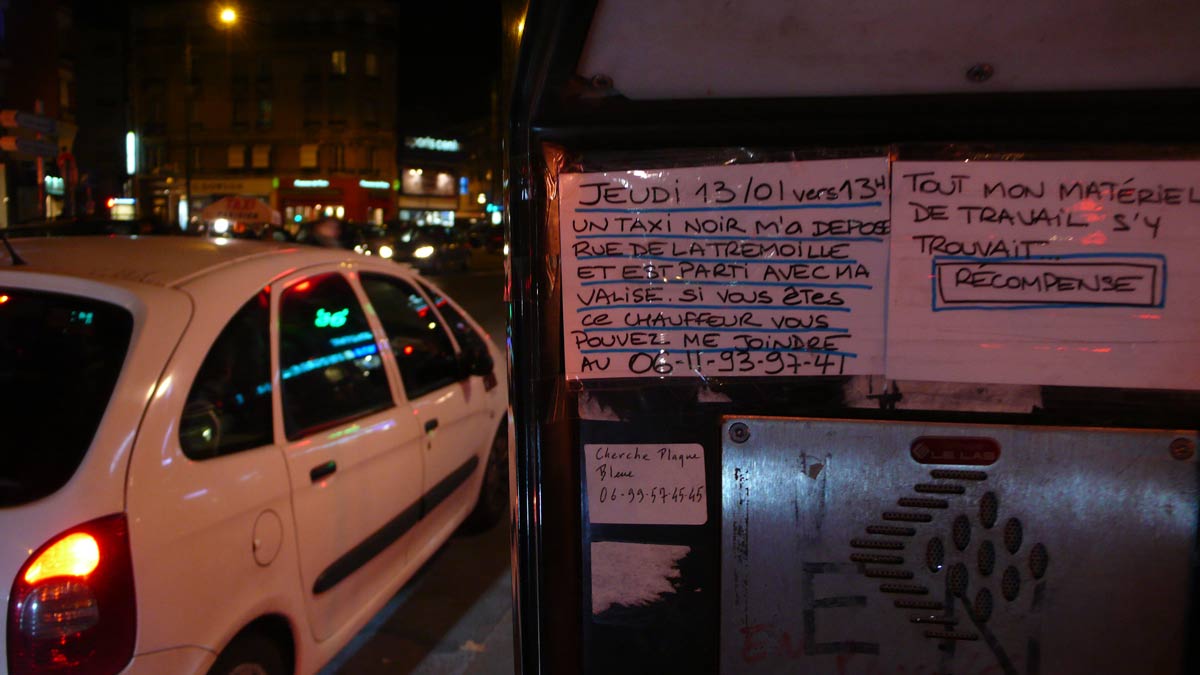 JEUDI 13/01 vers 13H
UN TAXI NOIR M'A DEPOSE
RUE DE LA TREMOILLE
ET EST PARTI AVEC MA
VALISE. SI VOUS ÊTES
CE CHAUFFEUR VOUS
POUVEZ ME JOINDRE
AU 06-11-93-97-41
TOUT MON MATÉRIEL
DE TRAVAIL S'Y
TROUVAIT...
RÉCOMPENSE
Cherche Plaque
Bleue
06-99-57-45-45
LE LAB
TAXI